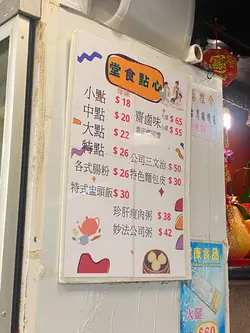 堂食點心
小點 $18
中點 $20
大點 $22
特點 $26
各式腸粉 $26
特式盅頭飯 $30
齋鹵味
$65
$55
公司三文治 $50
特色麵包皮 $30
珍肝瘦肉粥 $38
妙法公司粥 $42
康食品
火腿
$60